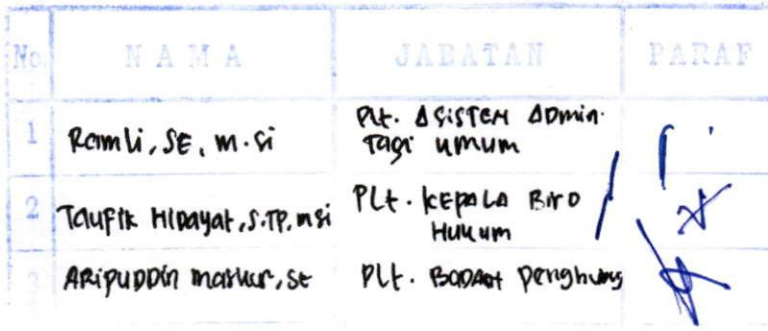 No. N A M A JABATAN PARAF
1 Ramli, SE, M.Si Plt. ASISTEN ADMIN.
umum
2 Taufik Hidayat, S.TP, MSi Plt. KEPALA BIRO
Hukum
3 ARIPUDDIN Maskur, SE Plt. Penghubung